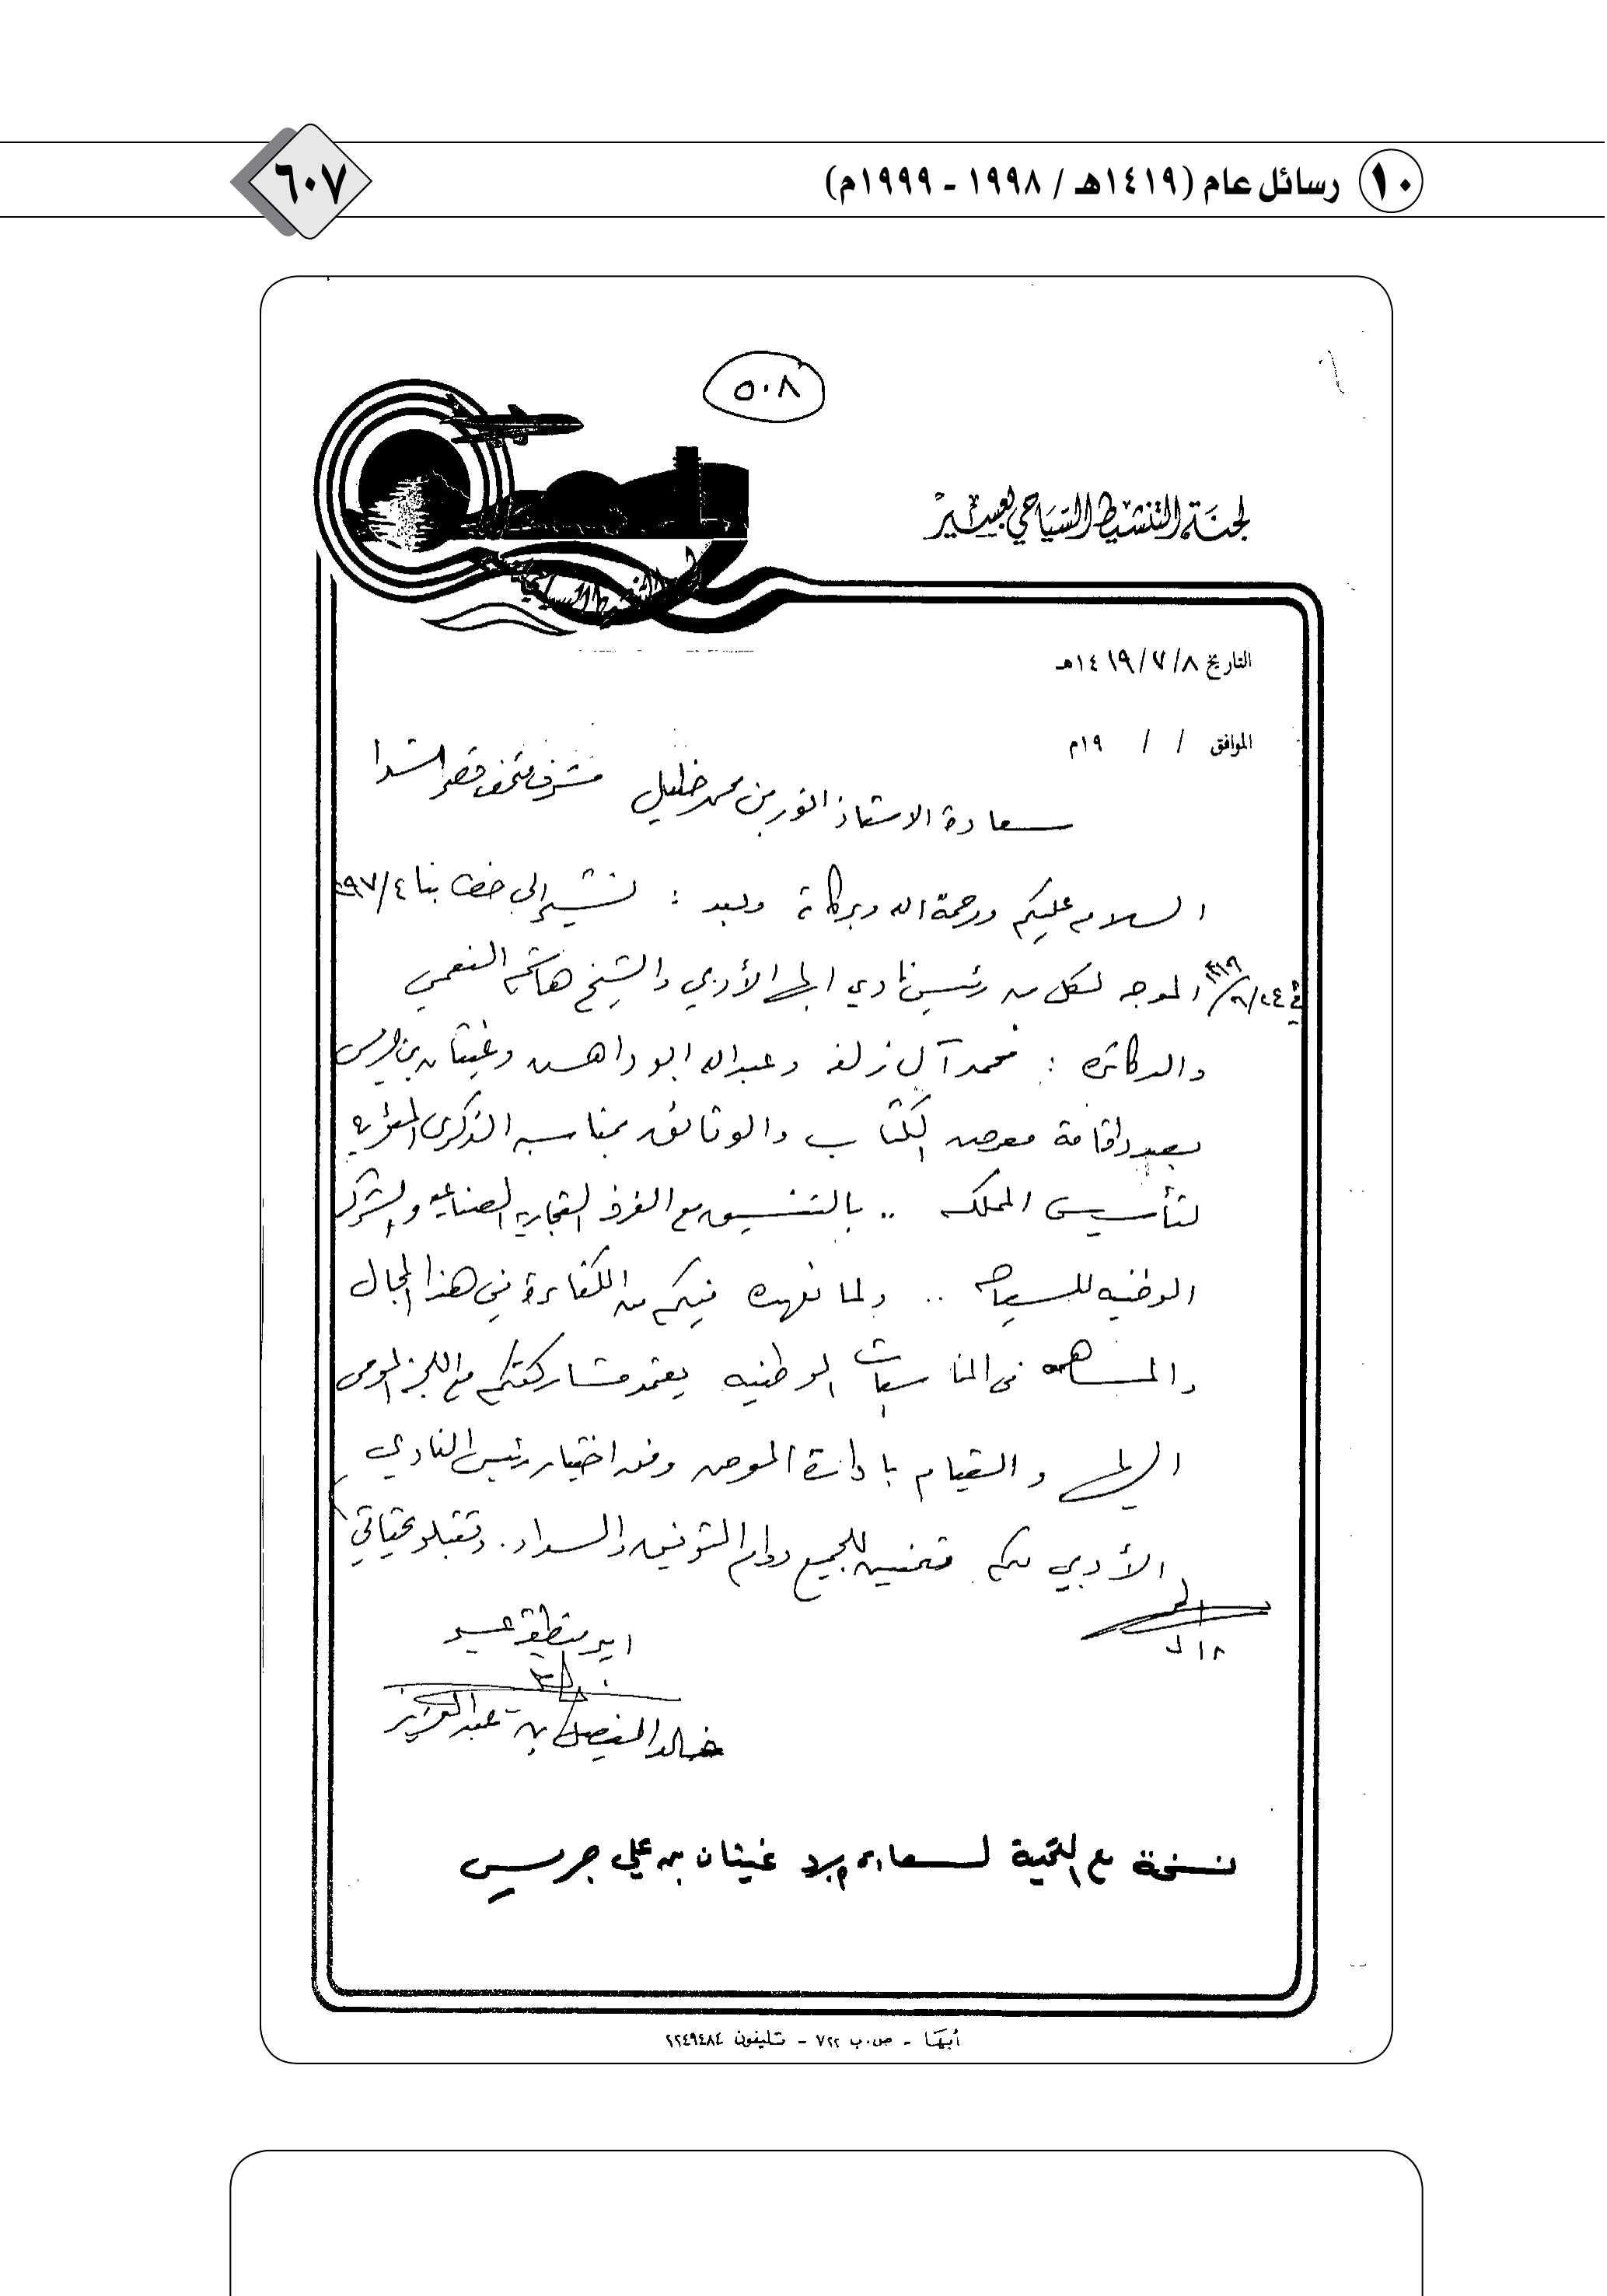 ١٠ رسائل عام (١٤١٩هـ / ١٩٩٨ - ١٩٩٩م)
٦٠٧
٥٠٨
لجنة التنشيط السياحي بعسير
التاريخ ٨/ ٧/ ١٤١٩هـ
الموافق / / ١٩م
سعادة الاستاذ انور بن محمد خليل مشرف متحف قصر شدا
السلام عليكم ورحمة الله وبركاته وبعد : نشير إلى خطابنا ٩٧/٤
في ٢٤/٦/١٤١٩ الموجه لكل من رئيس نادي ابها الأدبي والشيخ هاشم النعمي
والدكاتره : محمد آل زلفه وعبدالله ابو داهش وغيثان بن جريس
بصدد اقامة معرض الكتاب والوثائق بمناسبه الذكرى المئويه
لتأسيس المملكه .. بالتنسيق مع الغرفه التجاريه الصناعيه والشركه
الوطنيه للسياحه .. ولما نعهده فيكم من الكفاءة في هذا المجال
والمساهمه في المناسبات الوطنيه يعتمد مشاركتكم مع اللجنه المومى
اليها والقيام بادارة المعرض وفق اختيار رئيس النادي
الأدبي لكم متمنين للجميع دوام التوفيق والسداد . وتقبلو تحياتي
امير منطقة عسير
خالد الفيصل بن عبدالعزيز
نسخة مع التحية لسعادة غيثان بن علي جريس
أبها - ص.ب ٧٢٢ - تليفون ٢٢٤٩٤٨٤